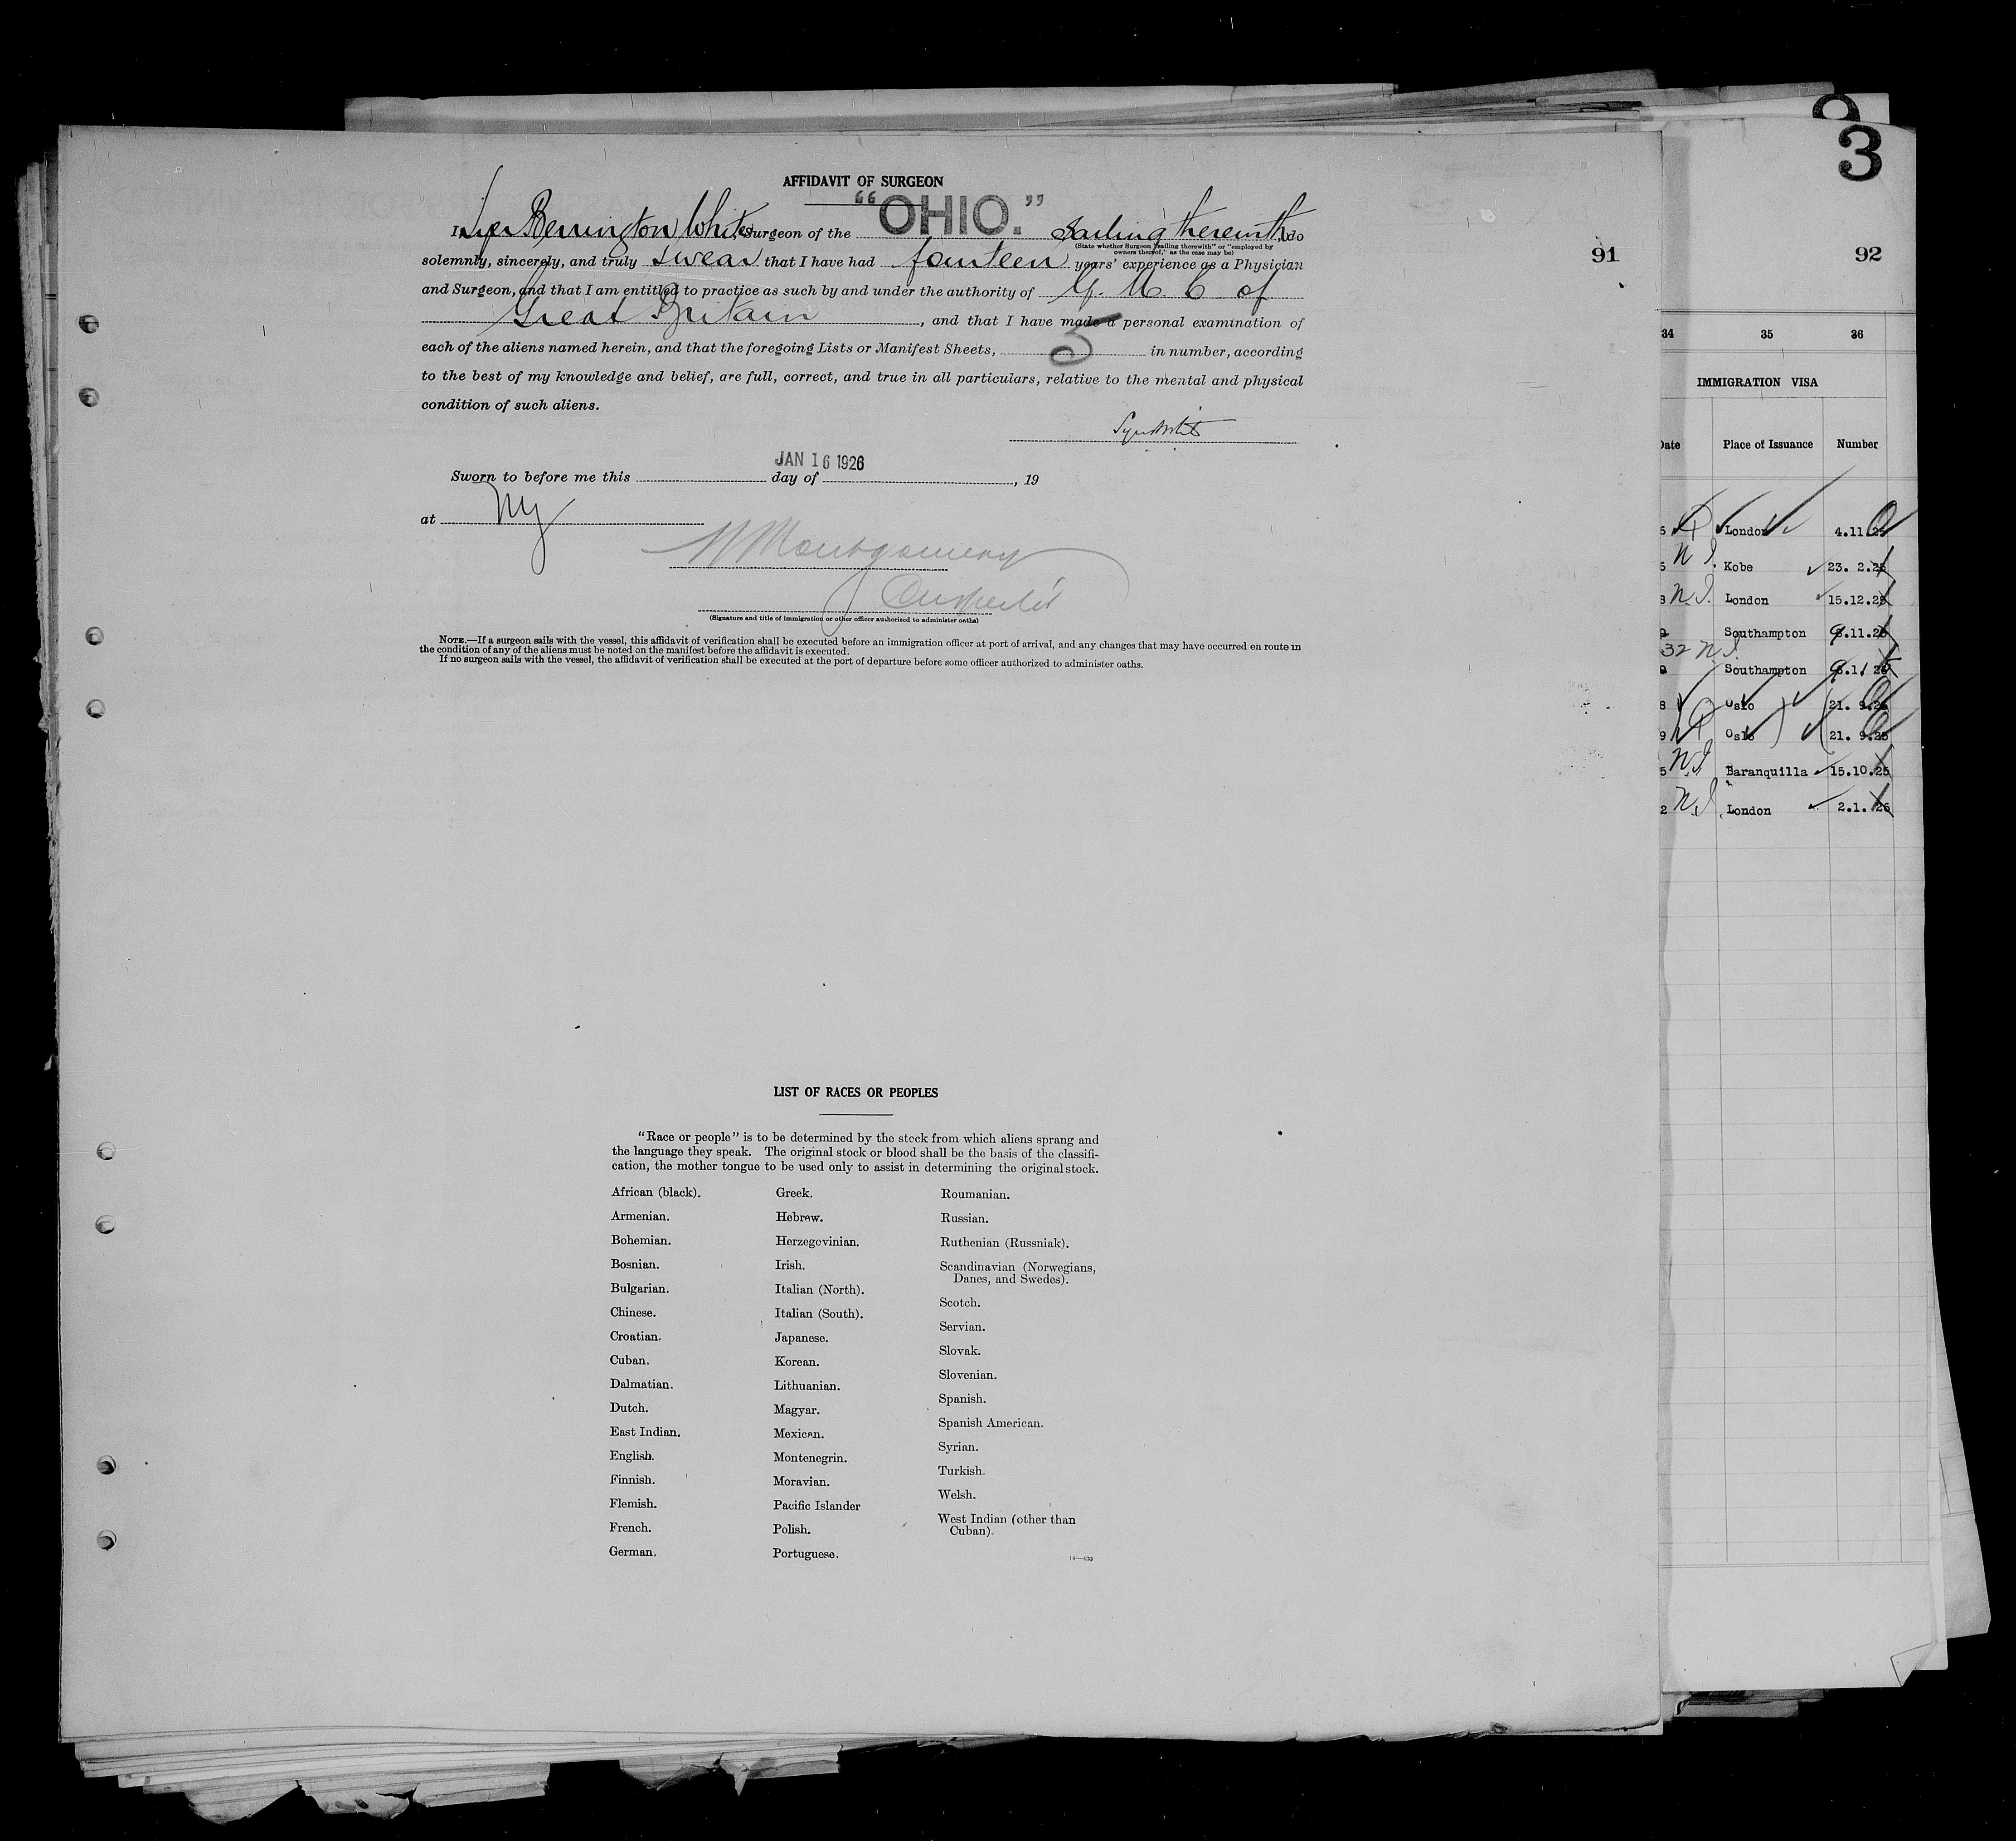 AFFIDAVIT OF SURGEON
I, Bennington White, Surgeon of the "OHIO." Sailing therewith, do
(State whether Surgeon "sailing therewith" or "employed by
owners thereof," as the case may be)
solemnly, sincerely, and truly swear that I have had fourteen years' experience as a Physician
and Surgeon, and that I am entitled to practice as such by and under the authority of G. M. C of
Great Britain, and that I have made a personal examination of
each of the aliens named herein, and that the foregoing Lists or Manifest Sheets, 5 in number, according
to the best of my knowledge and belief, are full, correct, and true in all particulars, relative to the mental and physical
condition of such aliens.
Sworn to before me this JAN 16 1926 day of , 19
at NY
Montgomery
(Signature and title of immigration or other officer authorized to administer oaths)
NOTE.—If a surgeon sails with the vessel, this affidavit of verification shall be executed before an immigration officer at port of arrival, and any changes that may have occurred en route in
the condition of any of the aliens must be noted on the manifest before the affidavit is executed.
If no surgeon sails with the vessel, the affidavit of verification shall be executed at the port of departure before some officer authorized to administer oaths.
LIST OF RACES OR PEOPLES
"Race or people" is to be determined by the stock from which aliens sprang and
the language they speak. The original stock or blood shall be the basis of the classifi-
cation, the mother tongue to be used only to assist in determining the original stock.
African (black).
Armenian.
Bohemian.
Bosnian.
Bulgarian.
Chinese.
Croatian.
Cuban.
Dalmatian.
Dutch.
East Indian.
English.
Finnish.
Flemish.
French.
German.
Greek.
Hebrew.
Herzegovinian.
Irish.
Italian (North).
Italian (South).
Japanese.
Korean.
Lithuanian.
Magyar.
Mexican.
Montenegrin.
Moravian.
Pacific Islander
Polish.
Portuguese.
Roumanian.
Russian.
Ruthenian (Russniak).
Scandinavian (Norwegians,
Danes, and Swedes).
Scotch.
Servian.
Slovak.
Slovenian.
Spanish.
Spanish American.
Syrian.
Turkish.
Welsh.
West Indian (other than
Cuban).
3
91 92
34 35 36
IMMIGRATION VISA
Date Place of Issuance Number
London 4.11.25
N I. Kobe 23. 2.25
N.I. London 15.12.25
Southampton 11.25
32 N I.
Southampton
Oslo 21. 9.25
Oslo 21. 9.25
N.I Baranquilla 15.10.25
N.I London 2.1.26